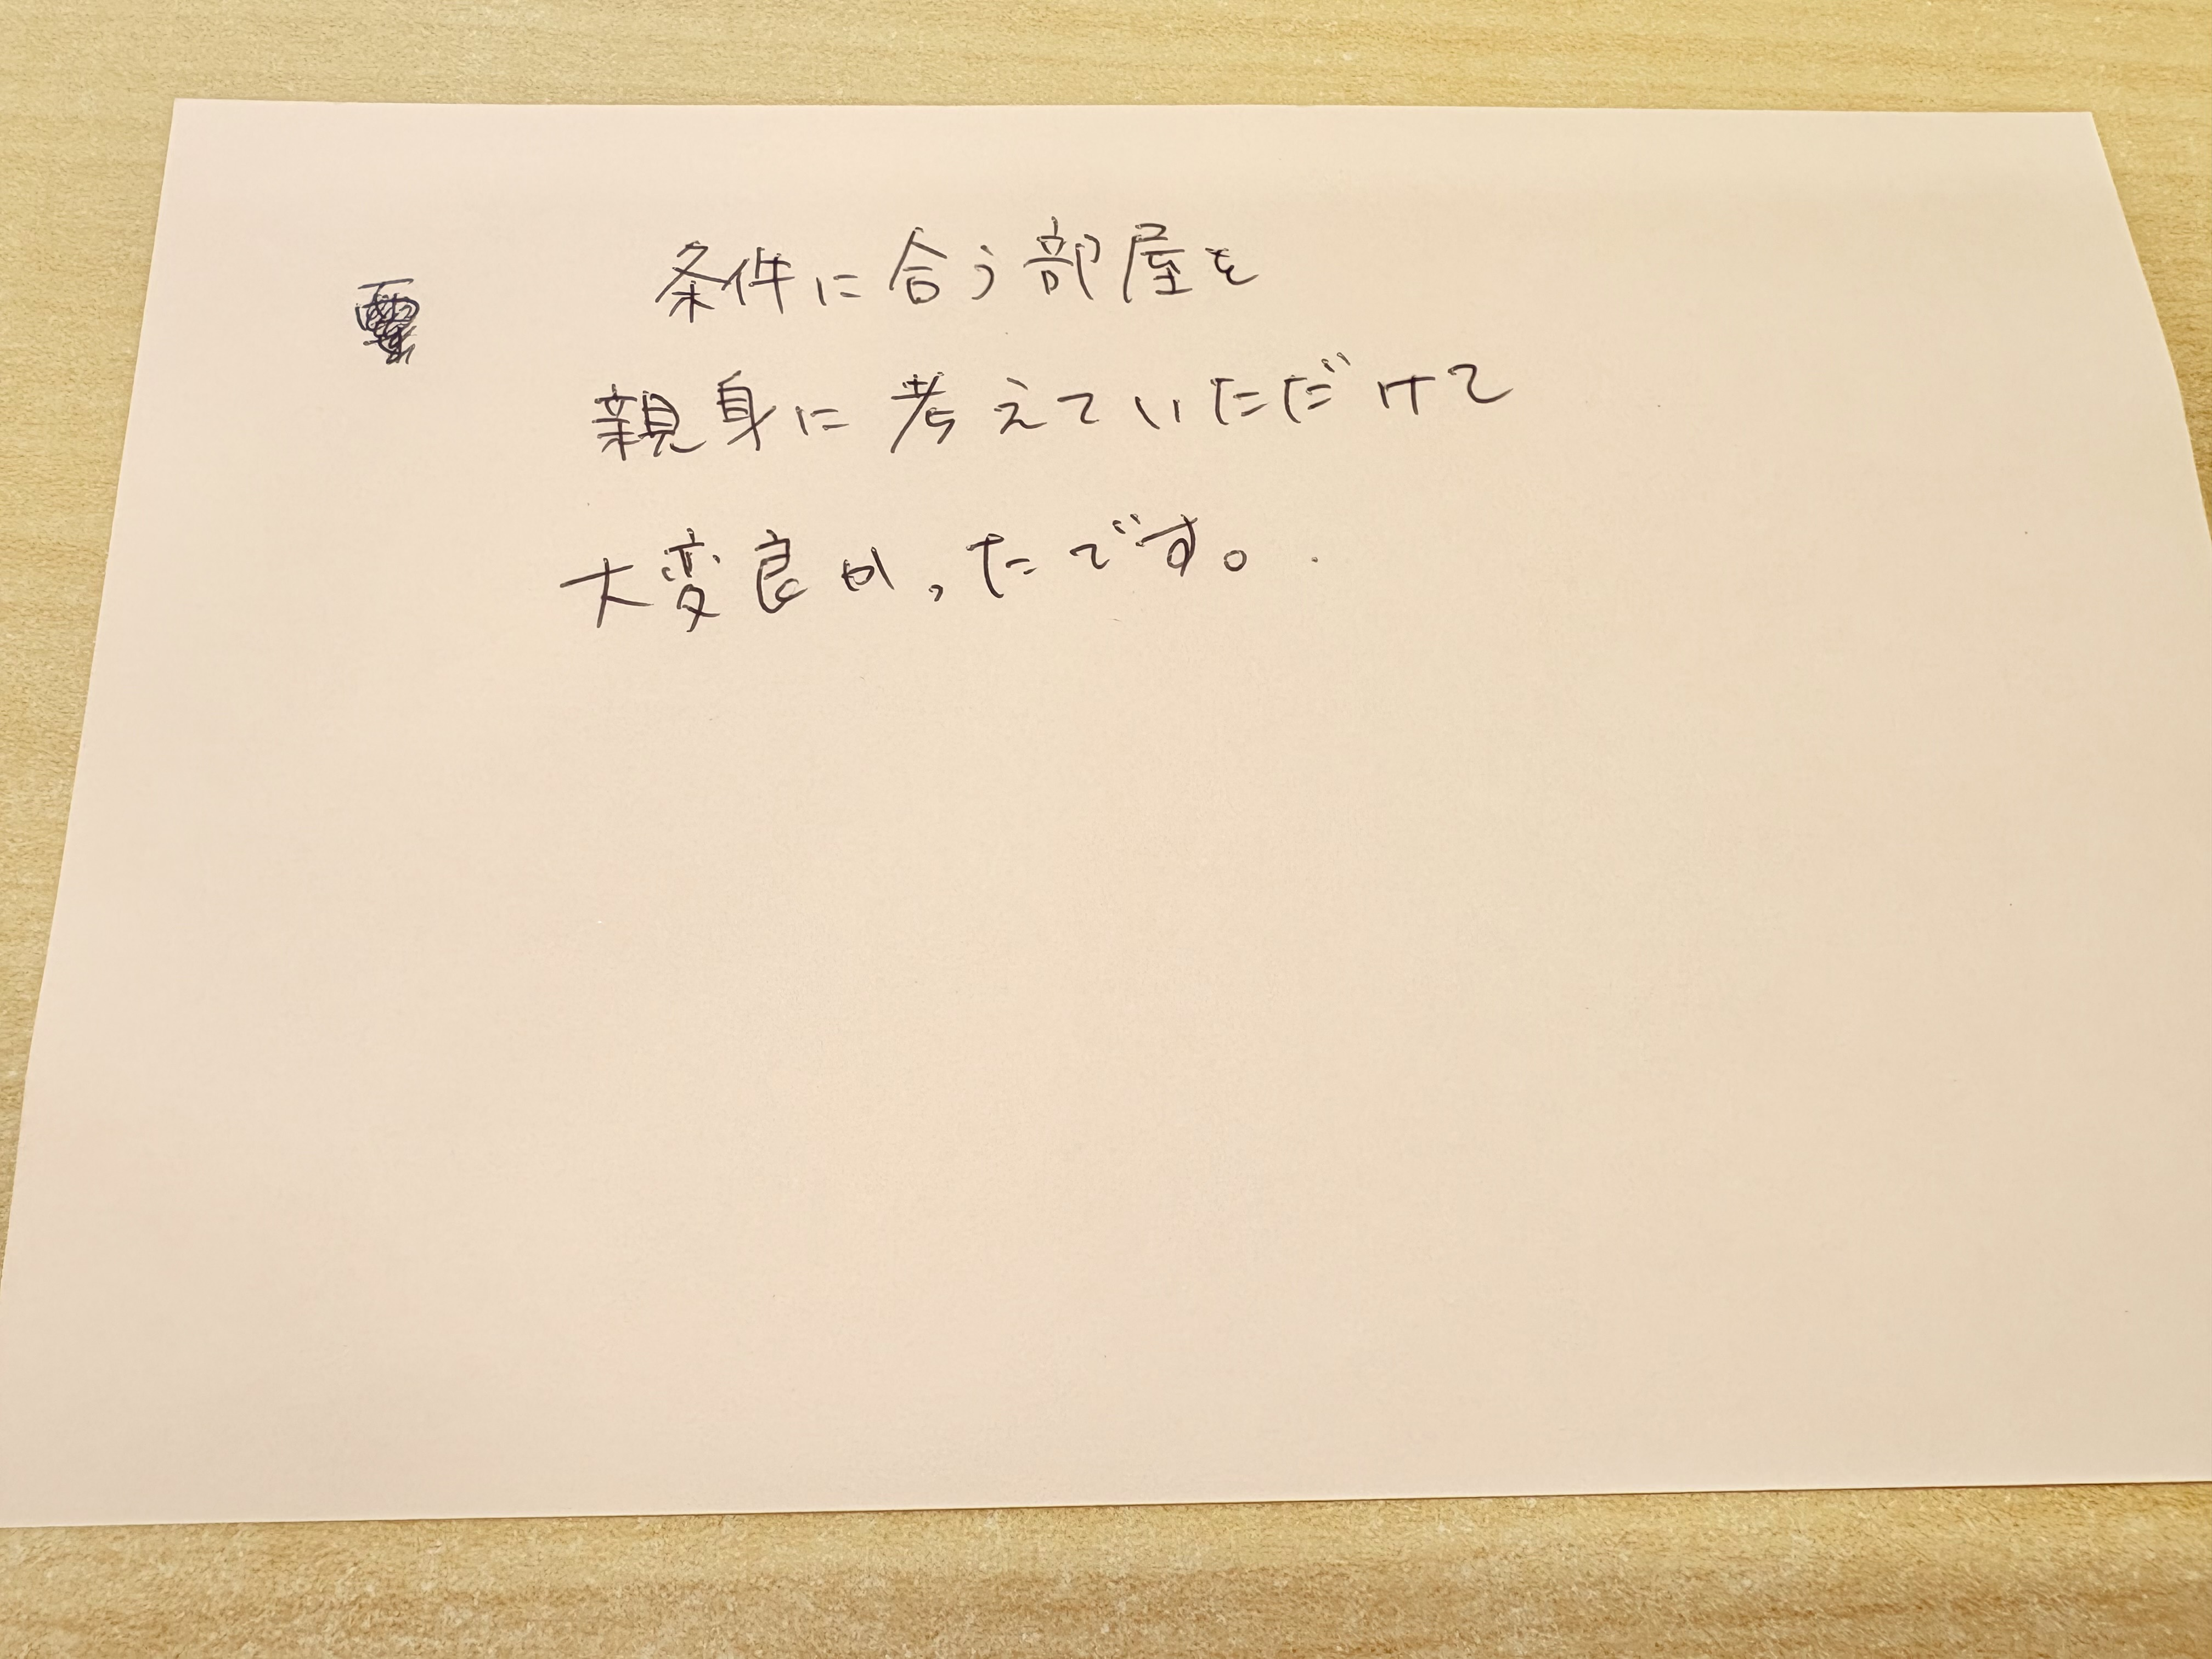 条件に合う部屋を
親身に考えていただけて
大変良かったです。